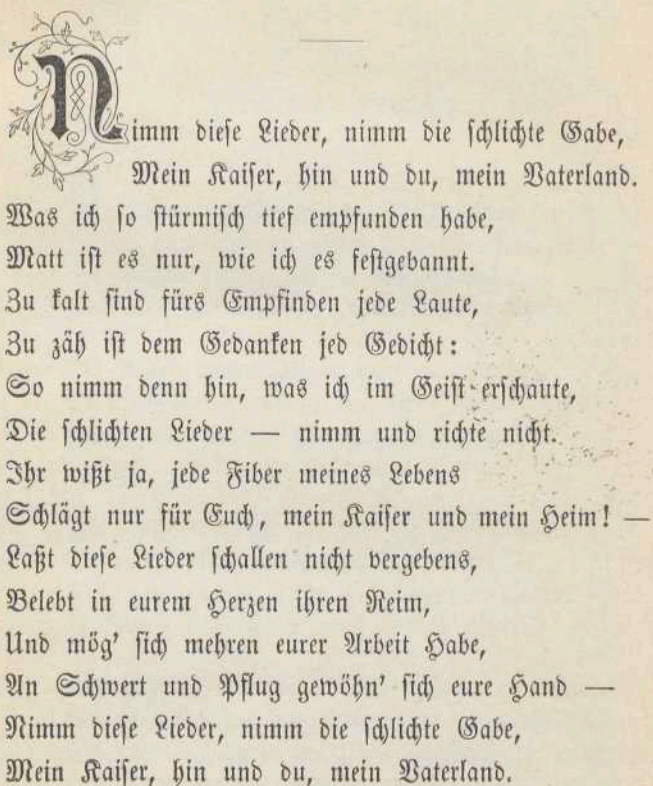 Nimm dieſe Lieder, nimm die ſchlichte Gabe,
Mein Kaiſer, hin und du, mein Vaterland.
Was ich ſo ſtürmiſch tief empfunden habe,
Matt iſt es nur, wie ich es feſtgebannt.
Zu kalt ſind fürs Empfinden jede Laute,
Zu zäh iſt dem Gedanken jed Gedicht:
So nimm denn hin, was ich im Geiſt erſchaute,
Die ſchlichten Lieder — nimm und richte nicht.
Ihr wißt ja, jede Fiber meines Lebens
Schlägt nur für Euch, mein Kaiſer und mein Heim! —
Laßt dieſe Lieder ſchallen nicht vergebens,
Belebt in eurem Herzen ihren Reim,
Und mög' ſich mehren eurer Arbeit Habe,
An Schwert und Pflug gewöhn' ſich eure Hand —
Nimm dieſe Lieder, nimm die ſchlichte Gabe,
Mein Kaiſer, hin und du, mein Vaterland.